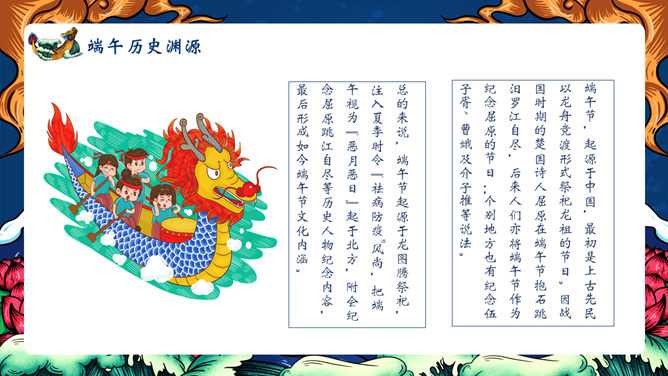 端午历史渊源
端午节，起源于中国，最初是上古先民
以龙舟竞渡形式祭祀龙祖的节日。因战
国时期的楚国诗人屈原在端午节抱石跳
汨罗江自尽，后来人们亦将端午节作为
纪念屈原的节日；个别地方也有纪念伍
子胥、曹娥及介子推等说法。
总的来说，端午节起源于龙图腾祭祀，
注入夏季时令“祛病防疫”风尚，把端
午视为“恶月恶日”起于北方，附会纪
念屈原跳江自尽等历史人物纪念内容，
最后形成如今端午节文化内涵。